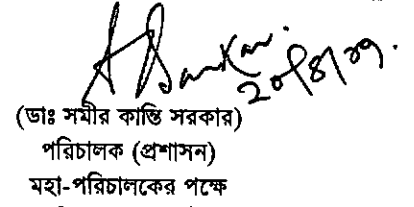 20/8/09.
(ডাঃ সমীর কান্তি সরকার)
পরিচালক (প্রশাসন)
মহা-পরিচালকের পক্ষে